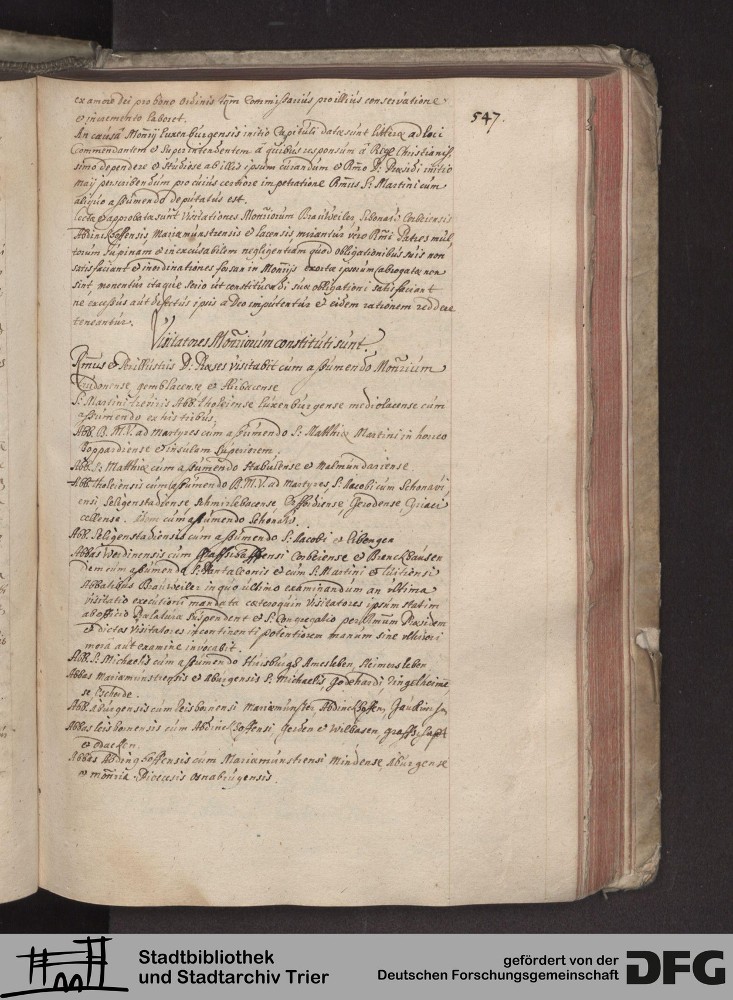 ex amore dei pro bono ordinis tqm Commissarius pro illius conservatione
et incremento laboret.
547.
In causa Monrij Luxenburgensis initio Capituli datae sunt litterae ad loci
Commendantem et Superintendentem a quibus responsum a Rege Christianis-
simo dependere et studiose ab illis ipsum curandum et Rmo D: Praesidi initio
maij perscribendum pro cuius certiore impetratione Rmus S: Martini cum
aliquo assumendo deputatus est.
Lecta et approbata sunt Visitationes Monriorum Brauweiler Schonaw Corbeiensis
Abdinckhoffensis Mariamunstrensis et Lacensis mirantur vero Rmi Patres mul-
torum supinam et inexcusabilem negligentiam quod obligationibus suis non
satisfaciant et inordinationes forsan in Monrijs exorta ipsorum abrogata non
sint monentur itaque serio ut constituendi suae obligationi satisfaciant
ne excessus aut defectus ipsis a Deo imputentur et eidem rationem reddere
teneantur.
Visitatores Monriorum constituti sunt
Rmus et Perillustris D: Praeses visitabit cum assumendo Monrium
Trudonense, gemblacense et
S: Martini treviris Abb: tholeiense Luxenburgense mediolacense cum
assumendo ex his tribus.
Abb. B. M. V. ad martyres cum assumendo S: Matthiae Martini in horreo
Boppardiense et insulam superiorem.
Abb. S: Matthiae cum assumendo Stabulense et malmundariense
Abb. tholeiensis cum assumendo B. M. V. ad martyres S: Jacobi cum Schonavi
ensi Seligenstadiense Schmirlebacense, Deffordiense, Gerodense Griaci
cellense. cum assumendo Schonaw.
Abb. Seligenstadiensis cum assumendo S: Jacobi et
Abbas Werdinensis cum Corbeiense et
dem cum assumendo S. Pantaleonis et cum S: Martini et tuitiensi
Abbatibus Brauweiler in quo ultimo examinandum an ultima
visitatio executioni mandata caeteroquin visitatores ipsum statim
ab officio Praelatura suspendent et S: Congregatio per Rmum Praesidem
et dictos visitatores incontinenti potentiorem manum sine ulteriori
mora aut examine invocabit.
Abb. S. Michaelis cum assumendo Huisburg Amesleben, Heimersleben
Abbas Mariamunstrensis et Abburgensis S. Michaelis, Godehardi Ringelheimen
se, Escherde.
Abb. Aburgensis cum leisbornensi Mariamunster, Abdinckhoffen,
Abbas leisbornensis cum Abdinckhoffensi Gerden et Willbasen,
et
Abbas Abdinghoffensis cum Mariamunstrensi Mindense, Aburgense
et monria Dioecesis Osnabrugensis.
Stadtbibliothek
und Stadtarchiv Trier
gefördert von der
Deutschen Forschungsgemeinschaft
DFG